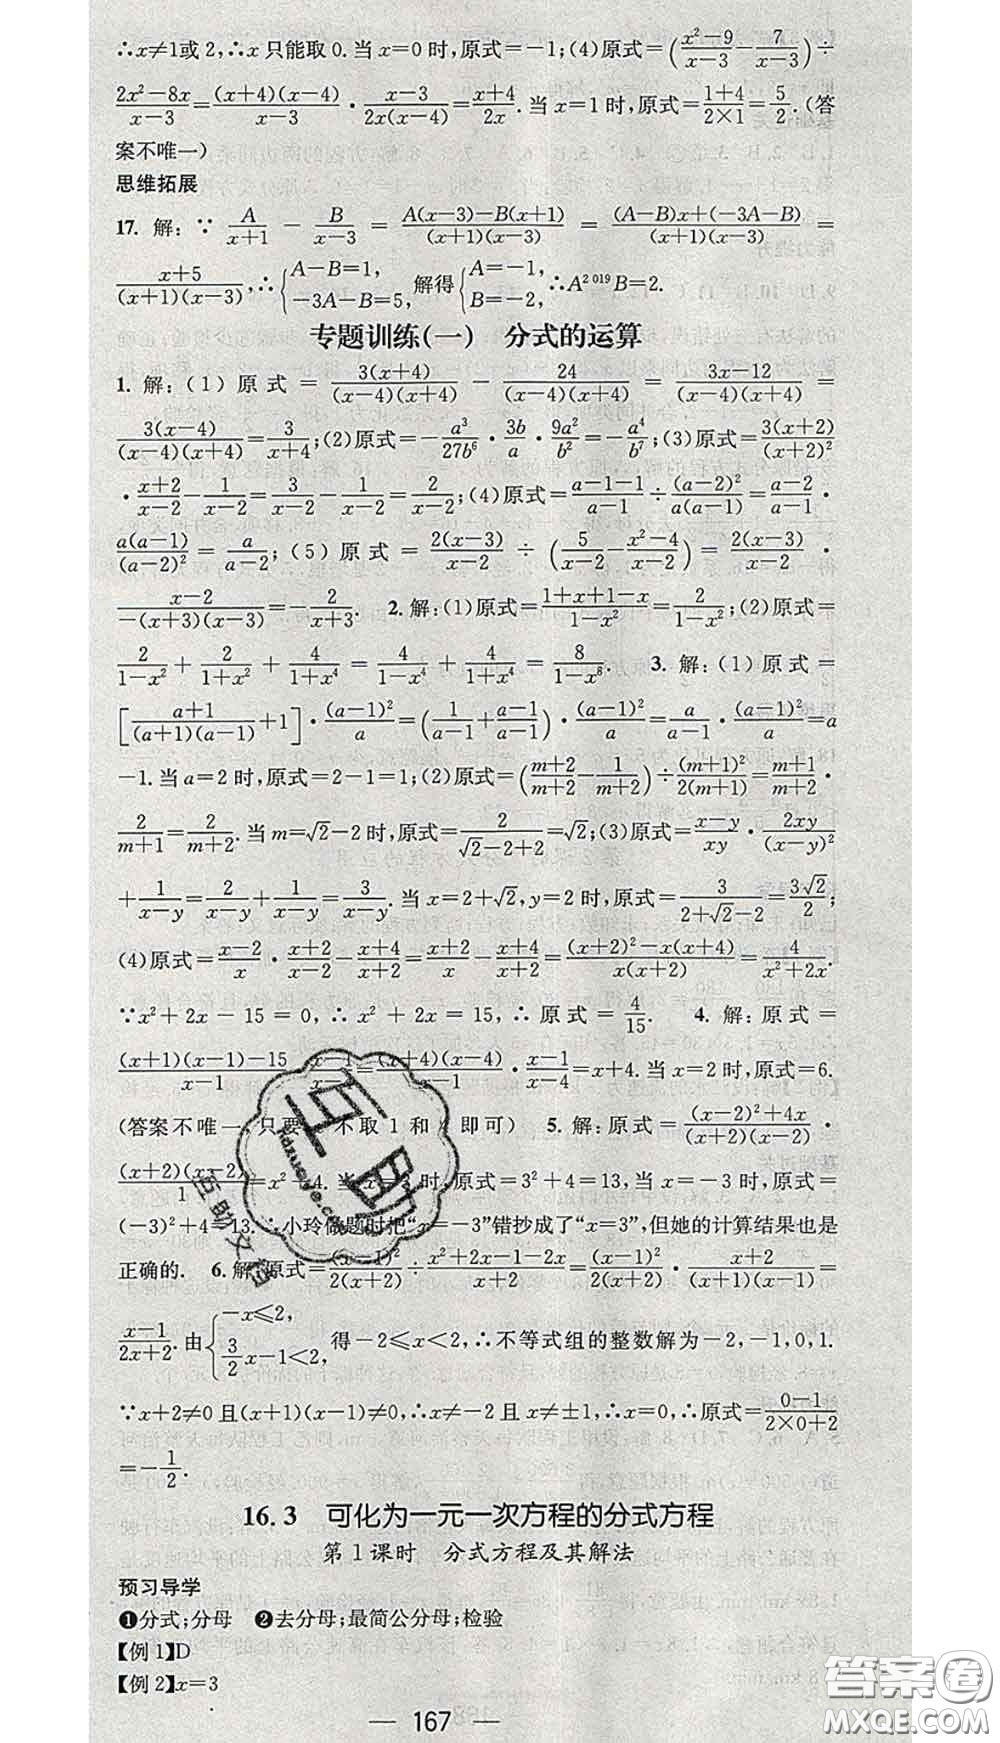 ∴x≠1或2,∴x只能取0.当x=0时,原式=-1;(4)原式=(\frac{x²-9}{x-3}-\frac{7}{x-3})÷
\frac{2x²-8x}{x-3}=\frac{(x+4)(x-4)}{x-3}·\frac{x-3}{2x(x-4)}=\frac{x+4}{2x}.当x=1时,原式=\frac{1+4}{2×1}=\frac{5}{2}.(答
案不唯一)
思维拓展
17. 解:∵\frac{A}{x+1}-\frac{B}{x-3}=\frac{A(x-3)-B(x+1)}{(x+1)(x-3)}=\frac{(A-B)x+(-3A-B)}{(x+1)(x-3)}=
\frac{x+5}{(x+1)(x-3)},∴{A-B=1, -3A-B=5,解得{A=-1, B=-2,∴A^{2019}B=2.
专题训练(一) 分式的运算
1. 解:(1)原式=\frac{3(x+4)}{(x-4)(x+4)}-\frac{24}{(x-4)(x+4)}=\frac{3x-12}{(x-4)(x+4)}=
\frac{3(x-4)}{(x-4)(x+4)}=\frac{3}{x+4};(2)原式=-\frac{a³}{27b⁶}·\frac{3b}{a}·\frac{9a²}{b²}=-\frac{a⁴}{b⁷};(3)原式=\frac{3(x+2)}{(x+2)²}
·\frac{x+2}{x-2}-\frac{1}{x-2}=\frac{3}{x-2}-\frac{1}{x-2}=\frac{2}{x-2};(4)原式=\frac{a-1-1}{a-1}÷\frac{(a-2)²}{a(a-1)}=\frac{a-2}{a-1}·
\frac{a(a-1)}{(a-2)²}=\frac{a}{a-2};(5)原式=\frac{2(x-3)}{x-2}÷(\frac{5}{x-2}-\frac{x²-4}{x-2})=\frac{2(x-3)}{x-2}·
\frac{x-2}{-(x+3)(x-3)}=-\frac{2}{x+3}. 2. 解:(1)原式=\frac{1+x+1-x}{1-x²}=\frac{2}{1-x²};(2)原式=
\frac{2}{1-x²}+\frac{2}{1+x²}+\frac{4}{1+x⁴}=\frac{4}{1-x⁴}+\frac{4}{1+x⁴}=\frac{8}{1-x⁸}. 3. 解:(1)原式=
[\frac{a+1}{(a+1)(a-1)}+1]·\frac{(a-1)²}{a}=(\frac{1}{a-1}+\frac{a-1}{a-1})·\frac{(a-1)²}{a}=\frac{a}{a-1}·\frac{(a-1)²}{a}=a
-1.当a=2时,原式=2-1=1;(2)原式=(\frac{m+2}{m+2}-\frac{1}{m+2})÷\frac{(m+1)²}{2(m+1)}=\frac{m+1}{m+2}·
\frac{2}{m+1}=\frac{2}{m+2}.当m=√2-2时,原式=\frac{2}{√2-2+2}=√2;(3)原式=\frac{x-y}{xy}·\frac{2xy}{(x-y)²}
+\frac{1}{x-y}=\frac{2}{x-y}+\frac{1}{x-y}=\frac{3}{x-y}.当x=2+√2,y=2时,原式=\frac{3}{2+√2-2}=\frac{3√2}{2};
(4)原式=\frac{x-2}{x}·\frac{x+2}{x-2}-\frac{x+4}{x+2}=\frac{x+2}{x}-\frac{x+4}{x+2}=\frac{(x+2)²-x(x+4)}{x(x+2)}=\frac{4}{x²+2x}.
∵x²+2x-15=0,∴x²+2x=15,∴原式=\frac{4}{15}. 4. 解:原式=
\frac{(x+1)(x-1)-15}{x-1}·\frac{x-1}{x-4}=\frac{(x+4)(x-4)}{x-1}·\frac{x-1}{x-4}=x+4.当x=2时,原式=6.
(答案不唯一,只要 不取1和 即可) 5. 解:原式=\frac{(x-2)²+4x}{(x+2)(x-2)}·
\frac{(x+2)(x-2)}{1}=x²+4.当x= 时,原式=3²+4=13,当x=-3时,原式=
(-3)²+4=13.∴小玲做题时把“x=-3”错抄成了“x=3”,但她的计算结果也是
正确的. 6. 解:原式=\frac{(x-1)²}{2(x+2)}÷\frac{x²+2x-1-2x}{x+2}=\frac{(x-1)²}{2(x+2)}·\frac{x+2}{(x+1)(x-1)}=
\frac{x-1}{2x+2}.由{-x≤2, \frac{3}{2}x-1<2,得-2≤x<2,∴不等式组的整数解为-2,-1,0,1.
∵x+2≠0且(x+1)(x-1)≠0,∴x≠-2且x≠±1,∴x=0,∴原式=\frac{0-1}{2×0+2}
=-\frac{1}{2}.
16.3 可化为一元一次方程的分式方程
第1课时 分式方程及其解法
预习导学
❶分式;分母 ❷去分母;最简公分母;检验
【例1】D
【例2】x=3
— 167 —
互助
huzuoye.com
互助文档
答案卷
MXQE.COM